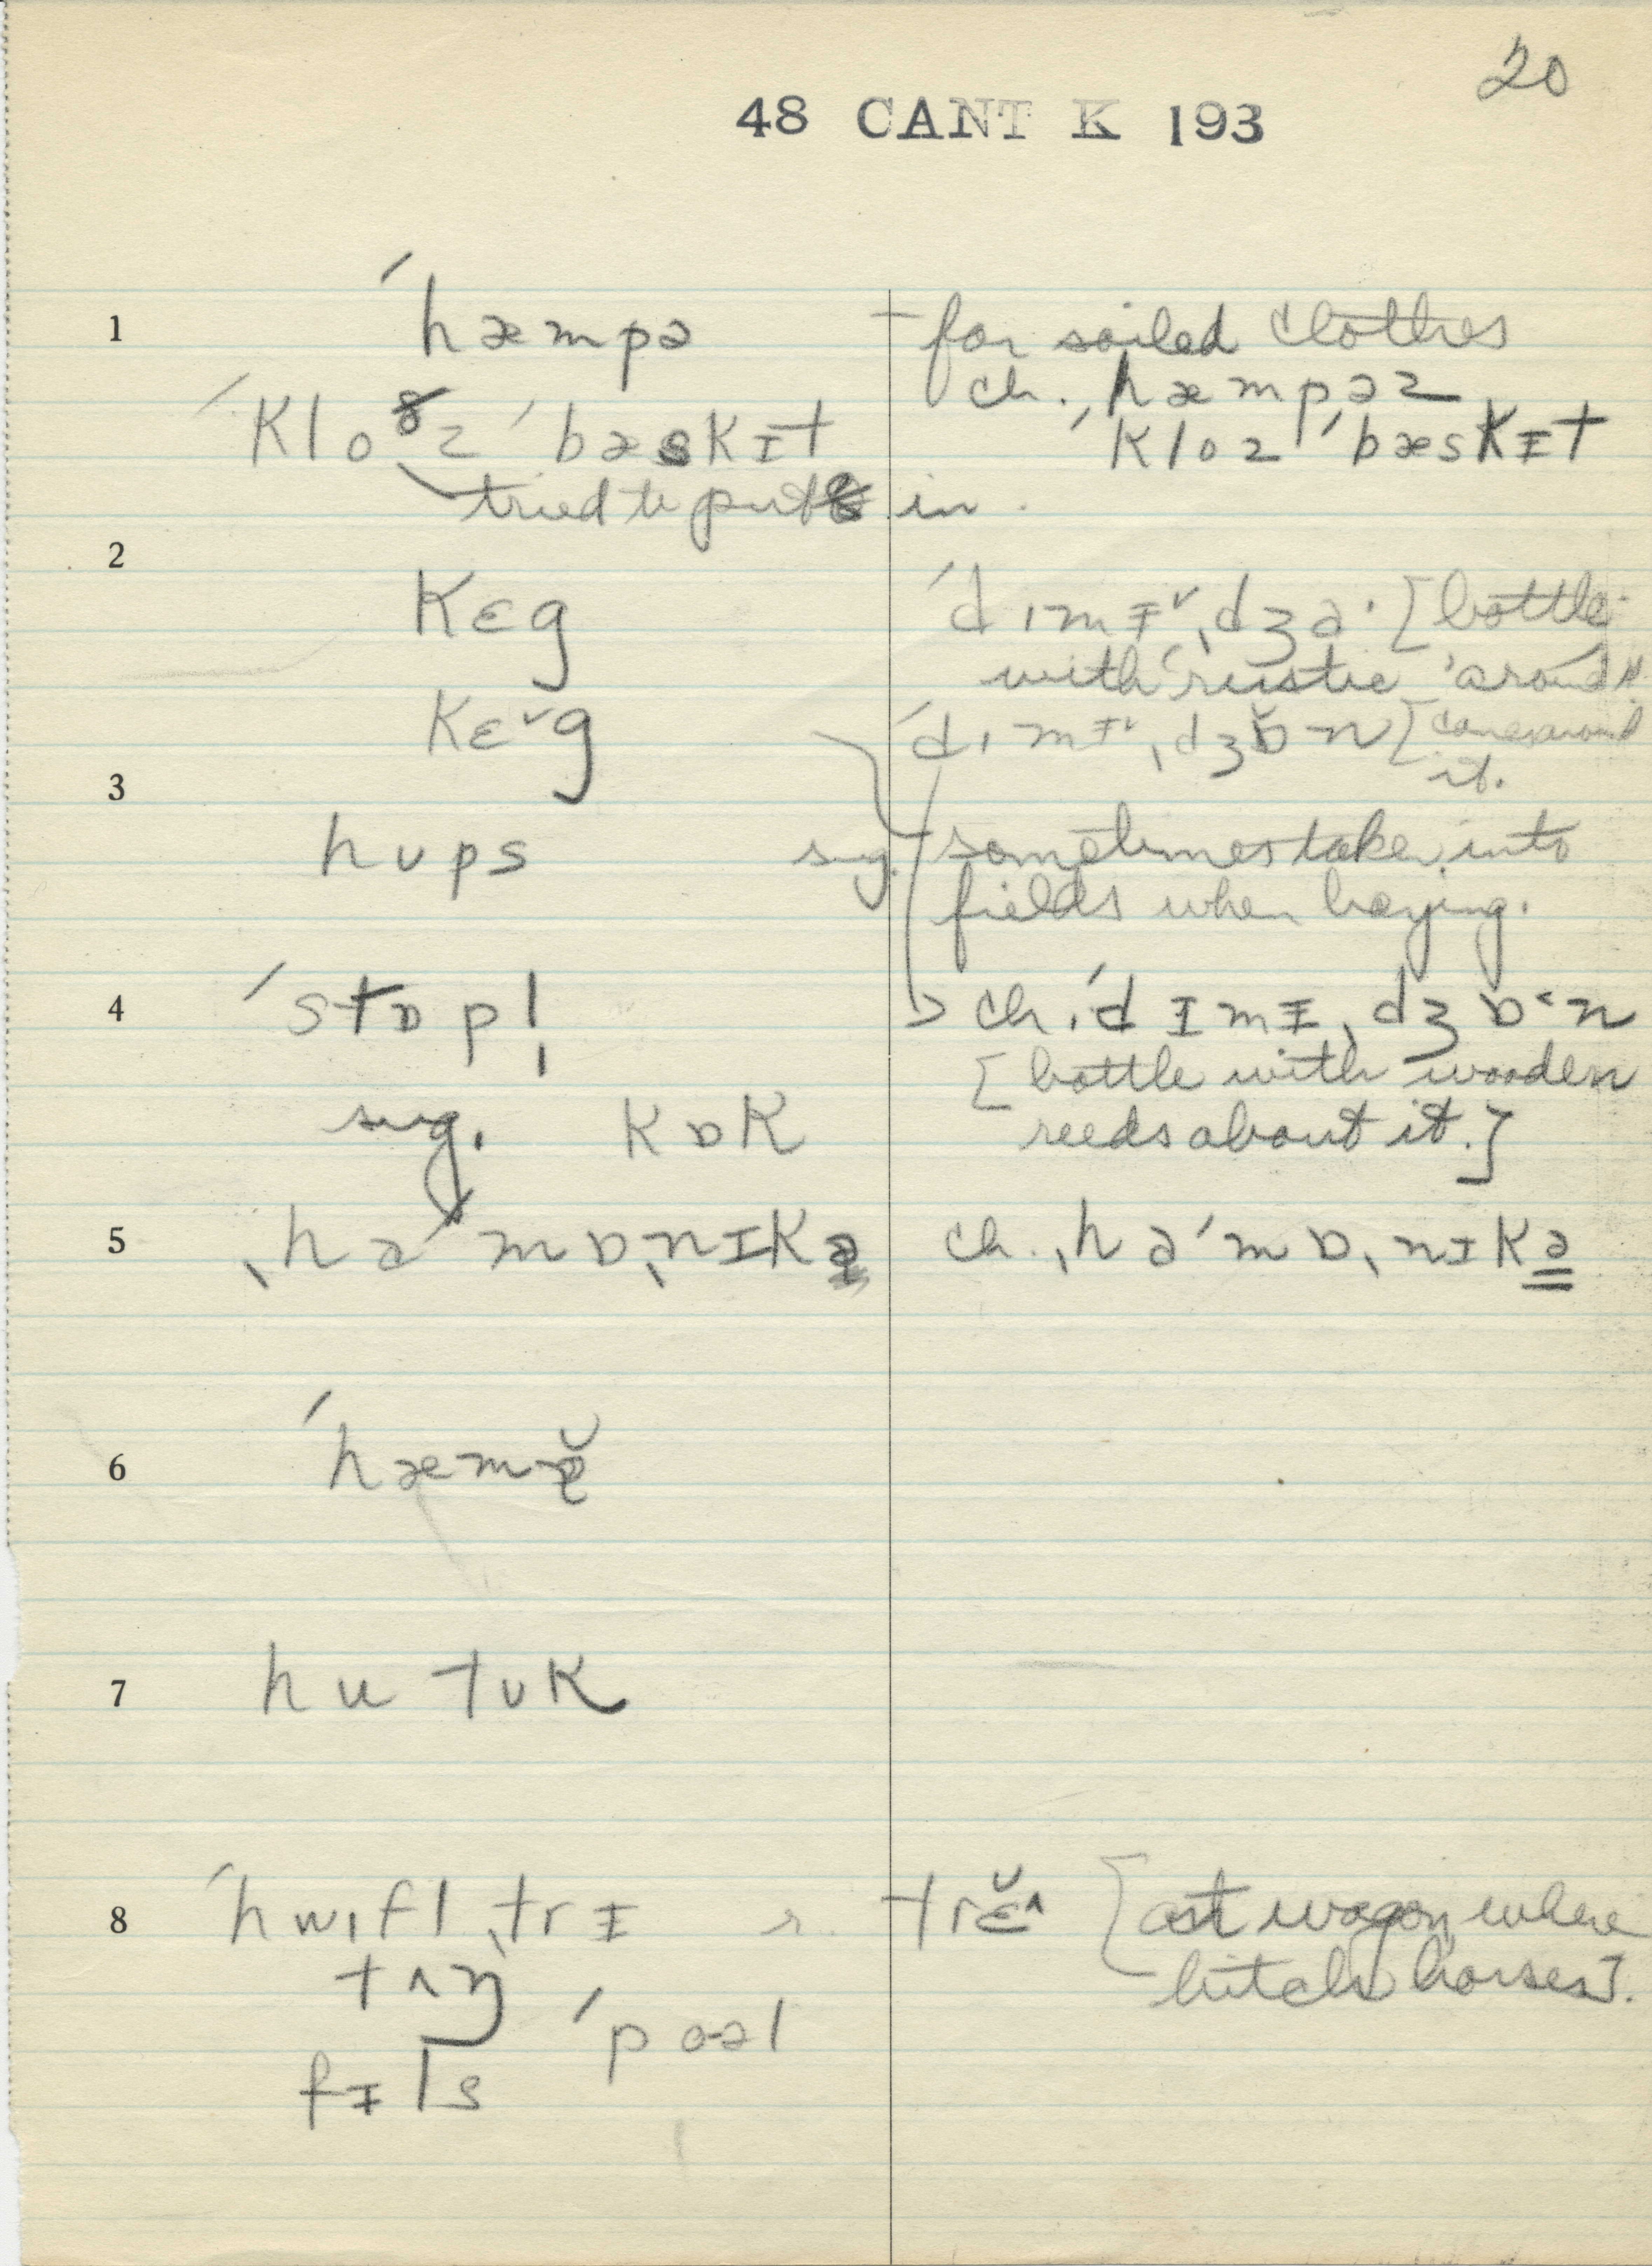 20
48 CANT K 193
1 ˈhæmpə – for soiled clothes
ch. ˈhæmpəz
ˈkloðz ˈbæskɪt ˈkloz ˈbæskɪt
tried to put ð in.
2
kɛg ˈdɪmɪ˅ˌdʒə· [bottle
with rustic around it.
kɛ˅g ˈdɪmɪ˅ˌdʒɒ̆n [cane around
it.
3
hʊps sug. sometimes take into
fields when haying.
4 ˈstɒpl̩ ch. ˈdɪmɪˌdʒɒ˂n
[bottle with wooden
sug. kɒk reeds about it.]
5 ˌhəˈmɒˌnɪkə ch. ˌhəˈmɒˌnɪkə
6 ˈhæmə̆
7 hu tʊk
8 ˈhwɪflˌtrɪ r. trɛ̆^ [at wagon where
tʌŋ hitch horses].
ˈpoəl
fɪls